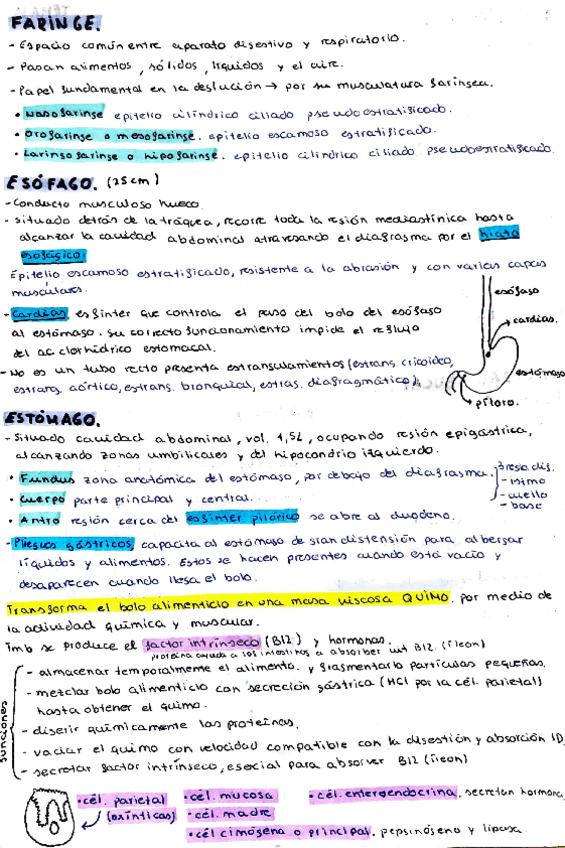 FARINGE.
- Espacio común entre aparato digestivo y respiratorio.
- Pasan alimentos, sólidos, líquidos y el aire.
- Papel fundamental en la deglución → por su musculatura faríngea.
• Nasofaringe epitelio cilíndrico ciliado pseudoestratificado.
• Orofaringe o mesofaringe. epitelio escamoso estratificado.
• Laringofaringe o hipofaringe. epitelio cilíndrico ciliado pseudoestratificado.
ESÓFAGO. (25cm)
- Conducto musculoso hueco.
- situado detrás de la tráquea, recorre toda la región mediastínica hasta
alcanzar la cavidad abdominal atravesando el diafragma por el hiato
esofágico.
Epitelio escamoso estratificado, resistente a la abrasión y con varias capas
musculares.
- Cardias. esfínter que controla el paso del bolo del esófago
al estómago. su correcto funcionamiento impide el reflujo
del ac clorhídrico estomacal.
- No es un tubo recto presenta estrangulamientos (estrang. cricoideo,
estrang. aórtico, estrang. bronquial, estras. diafragmático).
esófago
cardias.
estómago
píloro.
ESTÓMAGO.
- Situado cavidad abdominal, vol. 1,5L, ocupando región epigástrica,
alcanzando zonas umbilicales y del hipocondrio izquierdo.
• Fundus zona anatómica del estómago, por debajo del diafragma.
• Cuerpo parte principal y central.
• Antro región cerca del esfínter pilórico se abre al duodeno.
- istmo
- cuello
- base
- Pliegues gástricos, capacita al estómago de gran distensión para albergar
líquidos y alimentos. Estos se hacen presentes cuando está vacío y
desaparecen cuando llega el bolo.
Transforma el bolo alimenticio en una masa viscosa QUIMO. por medio de
la actividad química y muscular.
Tmb se produce el factor intrínseco (B12) y hormonas.
proteína ayuda a los intestinos a absorber vit B12. (íleon)
funciones
- almacenar temporalmente el alimento. y fragmentarlo partículas pequeñas.
- mezclar bolo alimenticio con secreción gástrica (HCl por la cél. parietal)
hasta obtener el quimo.
- digerir químicamente las proteínas.
- vaciar el quimo con velocidad compatible con la digestión y absorción ID
- secretar factor intrínseco, esencial para absorver B12 (íleon)
• cél. parietal
(oxínticas)
• cél. mucosa
• cél. madre
• cél. enteroendocrina. secretan hormona
• cél cimógena o principal. pepsinógeno y lipasa